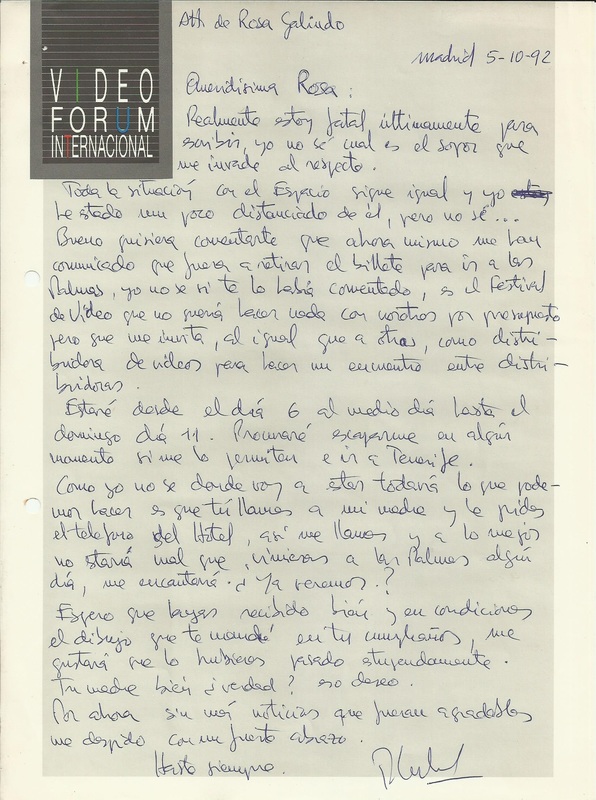 Att. de Rosa Galindo
Madrid 5-10-92
VIDEO
FORUM
INTERNACIONAL
Queridísima Rosa:
Realmente estoy fatal últimamente para
escribir, yo no sé cual es el sopor que
me invade al respecto.
Toda la situación con el Espacio sigue igual y yo
he estado un poco distanciado de él, pero no sé...
Bueno quisiera comentarte que ahora mismo me han
comunicado que fuera a retirar el billete para ir a las
Palmas, yo no se si te lo había comentado, es el Festival
de Video que no quería hacer nada con nosotros por presupuesto
pero que me invita, al igual que a otras, como distri-
buidora de videos para hacer un encuentro entre distri-
buidoras.
Estaré desde el día 6 al medio día hasta el
domingo día 11. Procuraré escaparme en algún
momento si me lo permiten e ir a Tenerife.
Como yo no se donde voy a estar todavía lo que pode-
mos hacer es que tú llames a mi madre y le pidas
el teléfono del Hotel, así me llamas y a lo mejor
no staría mal que vinieras a las Palmas algún
día, me encantaría. ¿Ya veremos?
Espero que hayas recibido bien y en condiciones
el dibujo que te mandé en tu cumpleaños, me
gustará que lo hubieras pasado stupendamente.
Tu madre bien ¿verdad? eso deseo.
Por ahora sin más noticias que fueran agradables
me despido con un fuerte abrazo.
Hasta siempre.